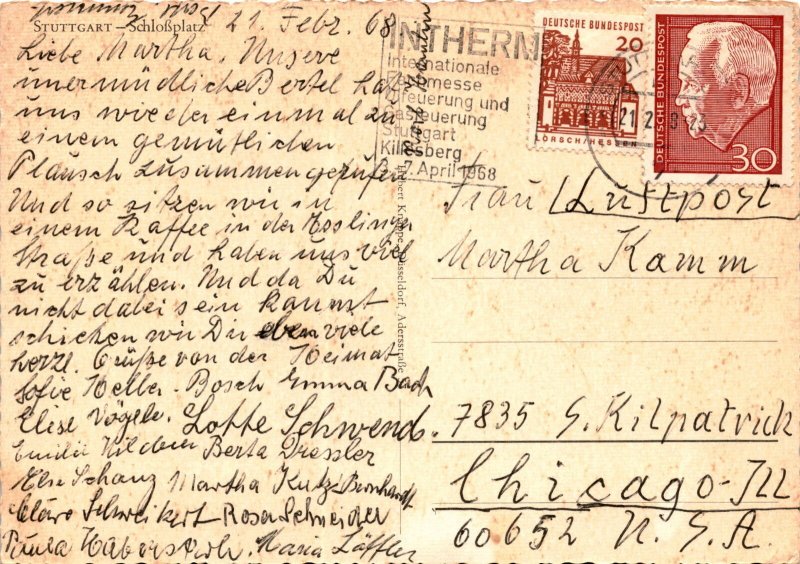 STUTTGART – Schloßplatz
21. Febr. 68
Liebe Martha. Unsere
unermüdliche Bertel hat
uns wieder einmal zu
einem gemütlichen
Plausch zusammengerufen
Und so sitzen wir in
einem Kaffee in der Esslinger
Straße und haben uns viel
zu erzählen. Und da Du
nicht dabei sein kannst
schicken wir Dir eben viele
herzl. Grüße von der Heimat
Sofie Heller - Bosch Emma Bach
Elise Vögele. Lotte Schwend.
Emilie Berta Dressler
Else Schanz Martha Kutz-Bernhardt
Claire Schweikert Rosa Schneider
Paula Haberstroh. Maria Löffler
INTHERM
Internationale
Ölfeuerung und
Gasfeuerung
Stuttgart
Killesberg
7. April 1968
DEUTSCHE BUNDESPOST
20
LORSCH/HESSEN
DEUTSCHE BUNDESPOST
30
21.2.68-23
Düsseldorf, Adersstraße
Frau (Luftpost
Martha Kamm
7835 S. Kilpatrick
Chicago-Ill
60652 U. S. A.